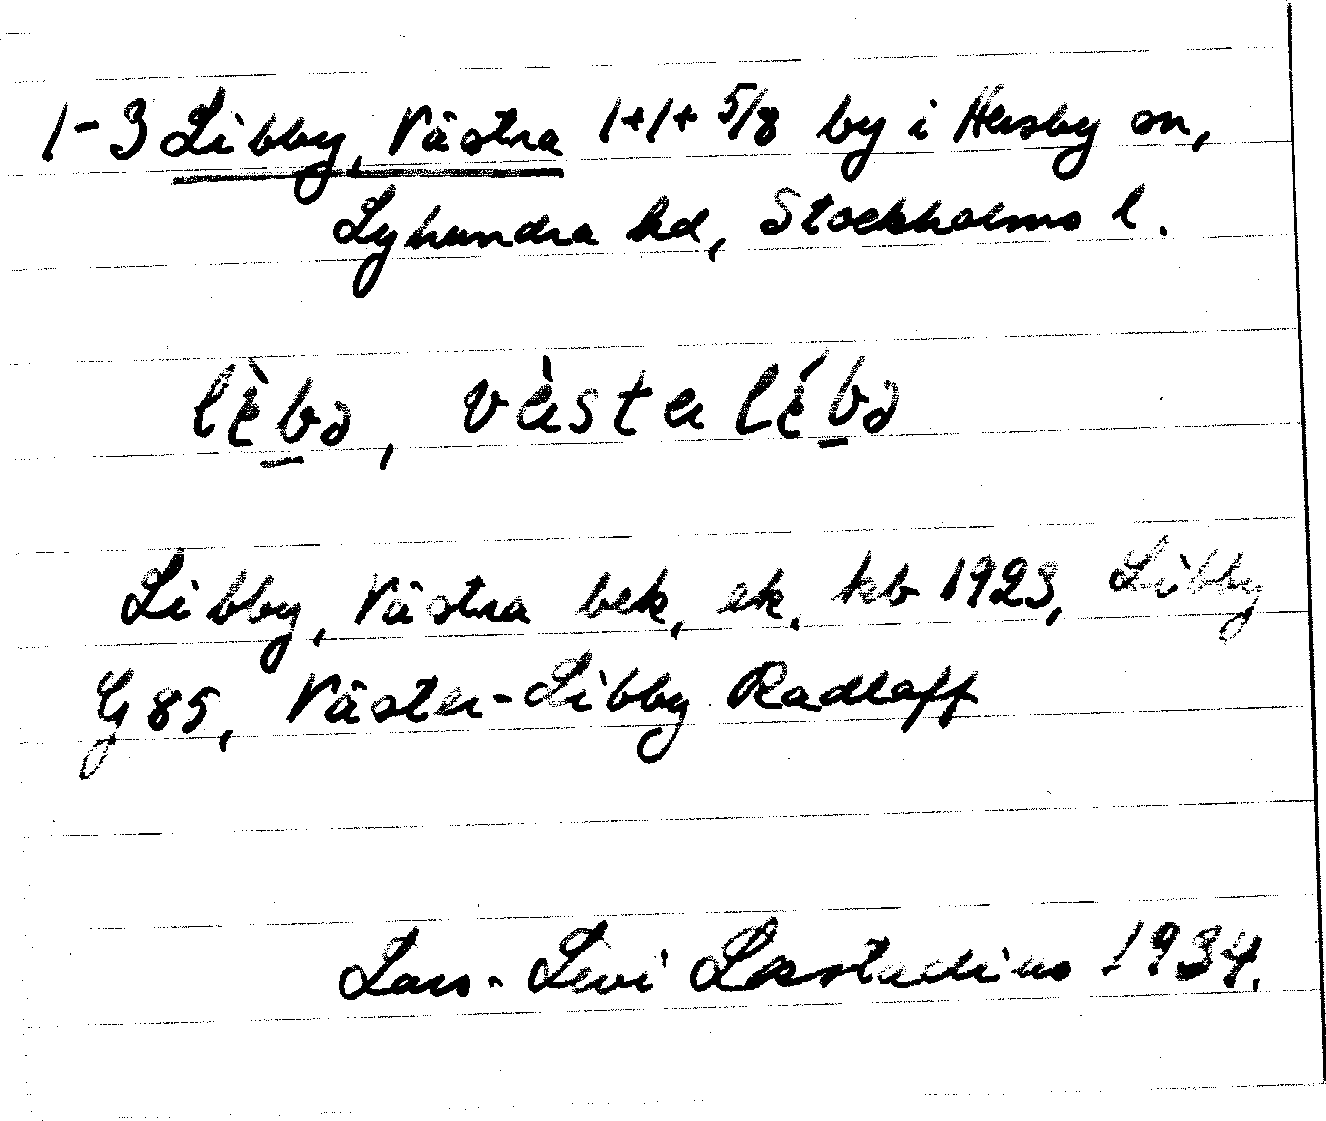 1-3 Libby, Västra 1+1+ 5/8 by i Husby sn,
Lyhundra hd, Stockholms l.
lèbə, vàsta lébə
Libby, Västra bek, ek. kb 1923, Libby
G 85, Väster-Libby Radloff
Lars-Levi Læstadius 1934.